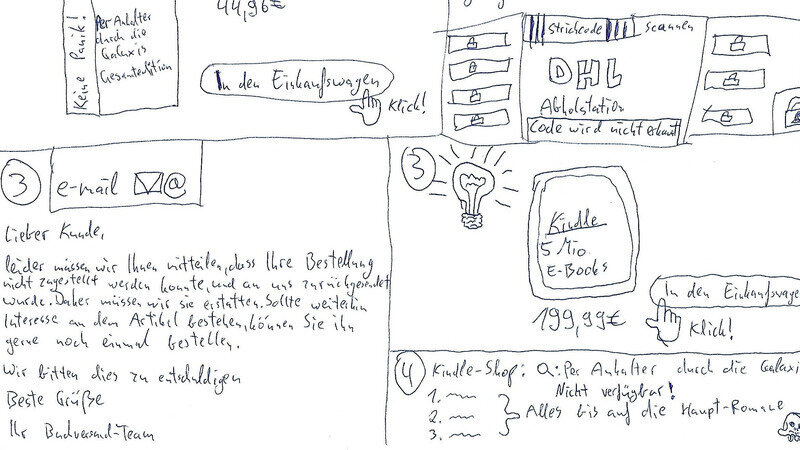 44,96€
Keine Panik!
Per Anhalter
durch die
Galaxis
Gesamtedition
In den Einkaufswagen
Klick!
Strichcode scannen
DHL
Abholstation
Code wird nicht erkannt
3 e-mail @
Lieber Kunde,
leider müssen wir Ihnen mitteilen, dass Ihre Bestellung
nicht zugestellt werden konnte, und an uns zurückgesendet
wurde. Daher müssen wir sie erstatten. Sollte weiterhin
Interesse an dem Artikel bestehen, können Sie ihn
gerne noch einmal bestellen.
Wir bitten dies zu entschuldigen
Beste Grüße
Ihr Buchversand-Team
3
Kindle
5 Mio
E-Books
199,99€
In den Einkaufswage
Klick!
4 Kindle-Shop: Q: Per Anhalter durch die Galaxi
Nicht verfügbar!
1.
2.
3.
Alles bis auf die Haupt-Romane